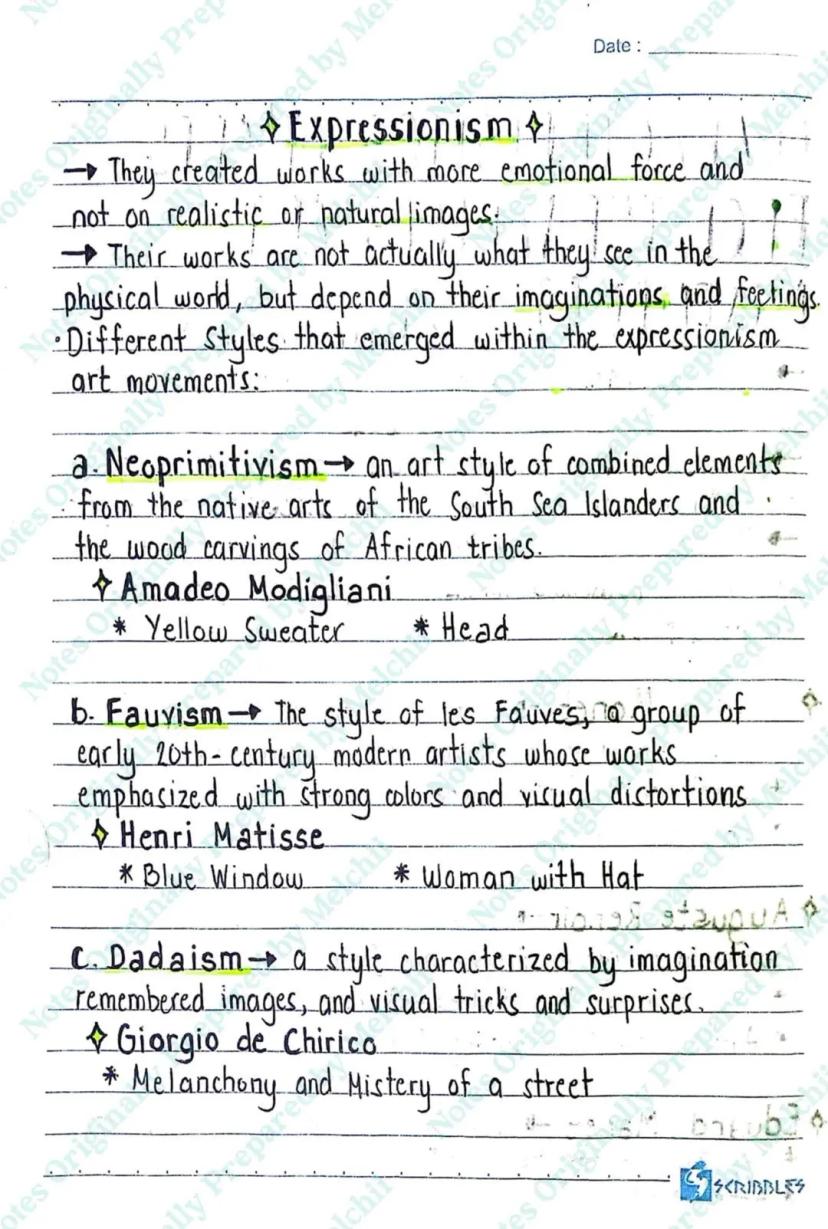 Date :
Expressionism
→ They created works with more emotional force and
not on realistic or natural images.
→ Their works are not actually what they see in the
physical world, but depend on their imaginations and feelings.
• Different Styles that emerged within the expressionism
art movements:
a. Neoprimitivism → an art style of combined elements
from the native arts of the South Sea Islanders and
the wood carvings of African tribes.
Amadeo Modigliani
* Yellow Sweater * Head
b. Fauvism → The style of les Fauves, a group of
early 20th-century modern artists whose works
emphasized with strong colors and visual distortions
Henri Matisse
* Blue Window * Woman with Hat
Auguste Renoir
c. Dadaism → a style characterized by imagination
remembered images, and visual tricks and surprises.
Giorgio de Chirico
* Melanchony and Mistery of a street
SCRIBBLES
Notes Originally Prepared by Melchii